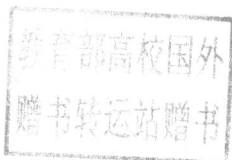 教育部高校国外
赠书转运站赠书